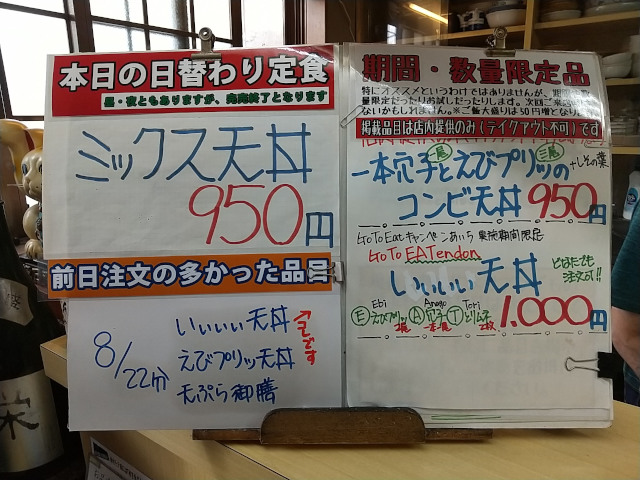 本日の日替わり定食
昼・夜ともありますが、完売終了となります
ミックス天丼
950円
前日注文の多かった品目
8/22分
いぃいぃ天丼
えびプリッ天丼
天ぷら御膳
↑コレです
期間・数量限定品
特にオススメというわけではありませんが、期間
量限定だったりお試しだったりします。次回ご来店
ないかもしれません。※ご飯大盛りは50円増となり
掲載品目は店内提供のみ(テイクアウト不可)です
一本穴子とえびプリッの
一尾
三尾
+しその葉
コンビ天丼 950円
GoToEatキャンペーンあいち 実施期間限定
GoTo EATendon
いぃいぃ天丼
どなたでも
注文可!!
Ebi Anago Tori
Eえびプリッ2尾 A穴子一本尾 Tとりムネ2枚
1.000円
栄